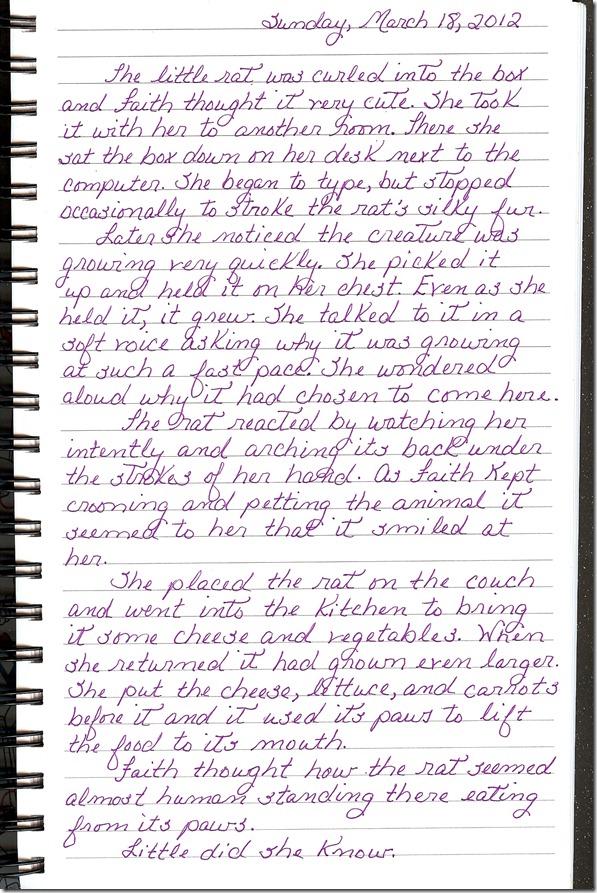 Sunday, March 18, 2012
The little rat was curled into the box
and Faith thought it very cute. She took
it with her to another room. There she
sat the box down on her desk next to the
computer. She began to type, but stopped
occasionally to stroke the rat's silky fur.
Later she noticed the creature was
growing very quickly. She picked it
up and held it on her chest. Even as she
held it, it grew. She talked to it in a
soft voice asking why it was growing
at such a fast pace. She wondered
aloud why it had chosen to come here.
The rat reacted by watching her
intently and arching its back under
the strokes of her hand. As Faith kept
crooning and petting the animal it
seemed to her that it smiled at
her.
She placed the rat on the couch
and went into the kitchen to bring
it some cheese and vegetables. When
she returned it had grown even larger.
She put the cheese, lettuce, and carrots
before it and it used its paws to lift
the food to its mouth.
Faith thought how the rat seemed
almost human standing there eating
from its paws.
Little did she know.